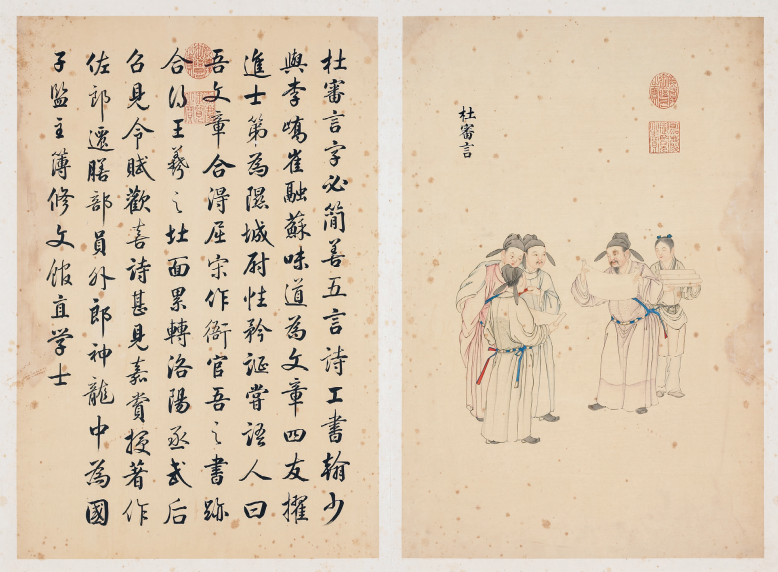 杜審言字必簡善五言詩工書翰少
與李嶠崔融蘇味道為文章四友擢
進士第為隰城尉性矜誕嘗語人曰
吾文章合得屈宋作衙官吾之書跡
合得王羲之北面累轉洛陽丞武后
召見令賦歡喜詩甚見嘉賞授著作
佐郎遷膳部員外郎神龍中為國
子監主簿修文館直学士
杜審言